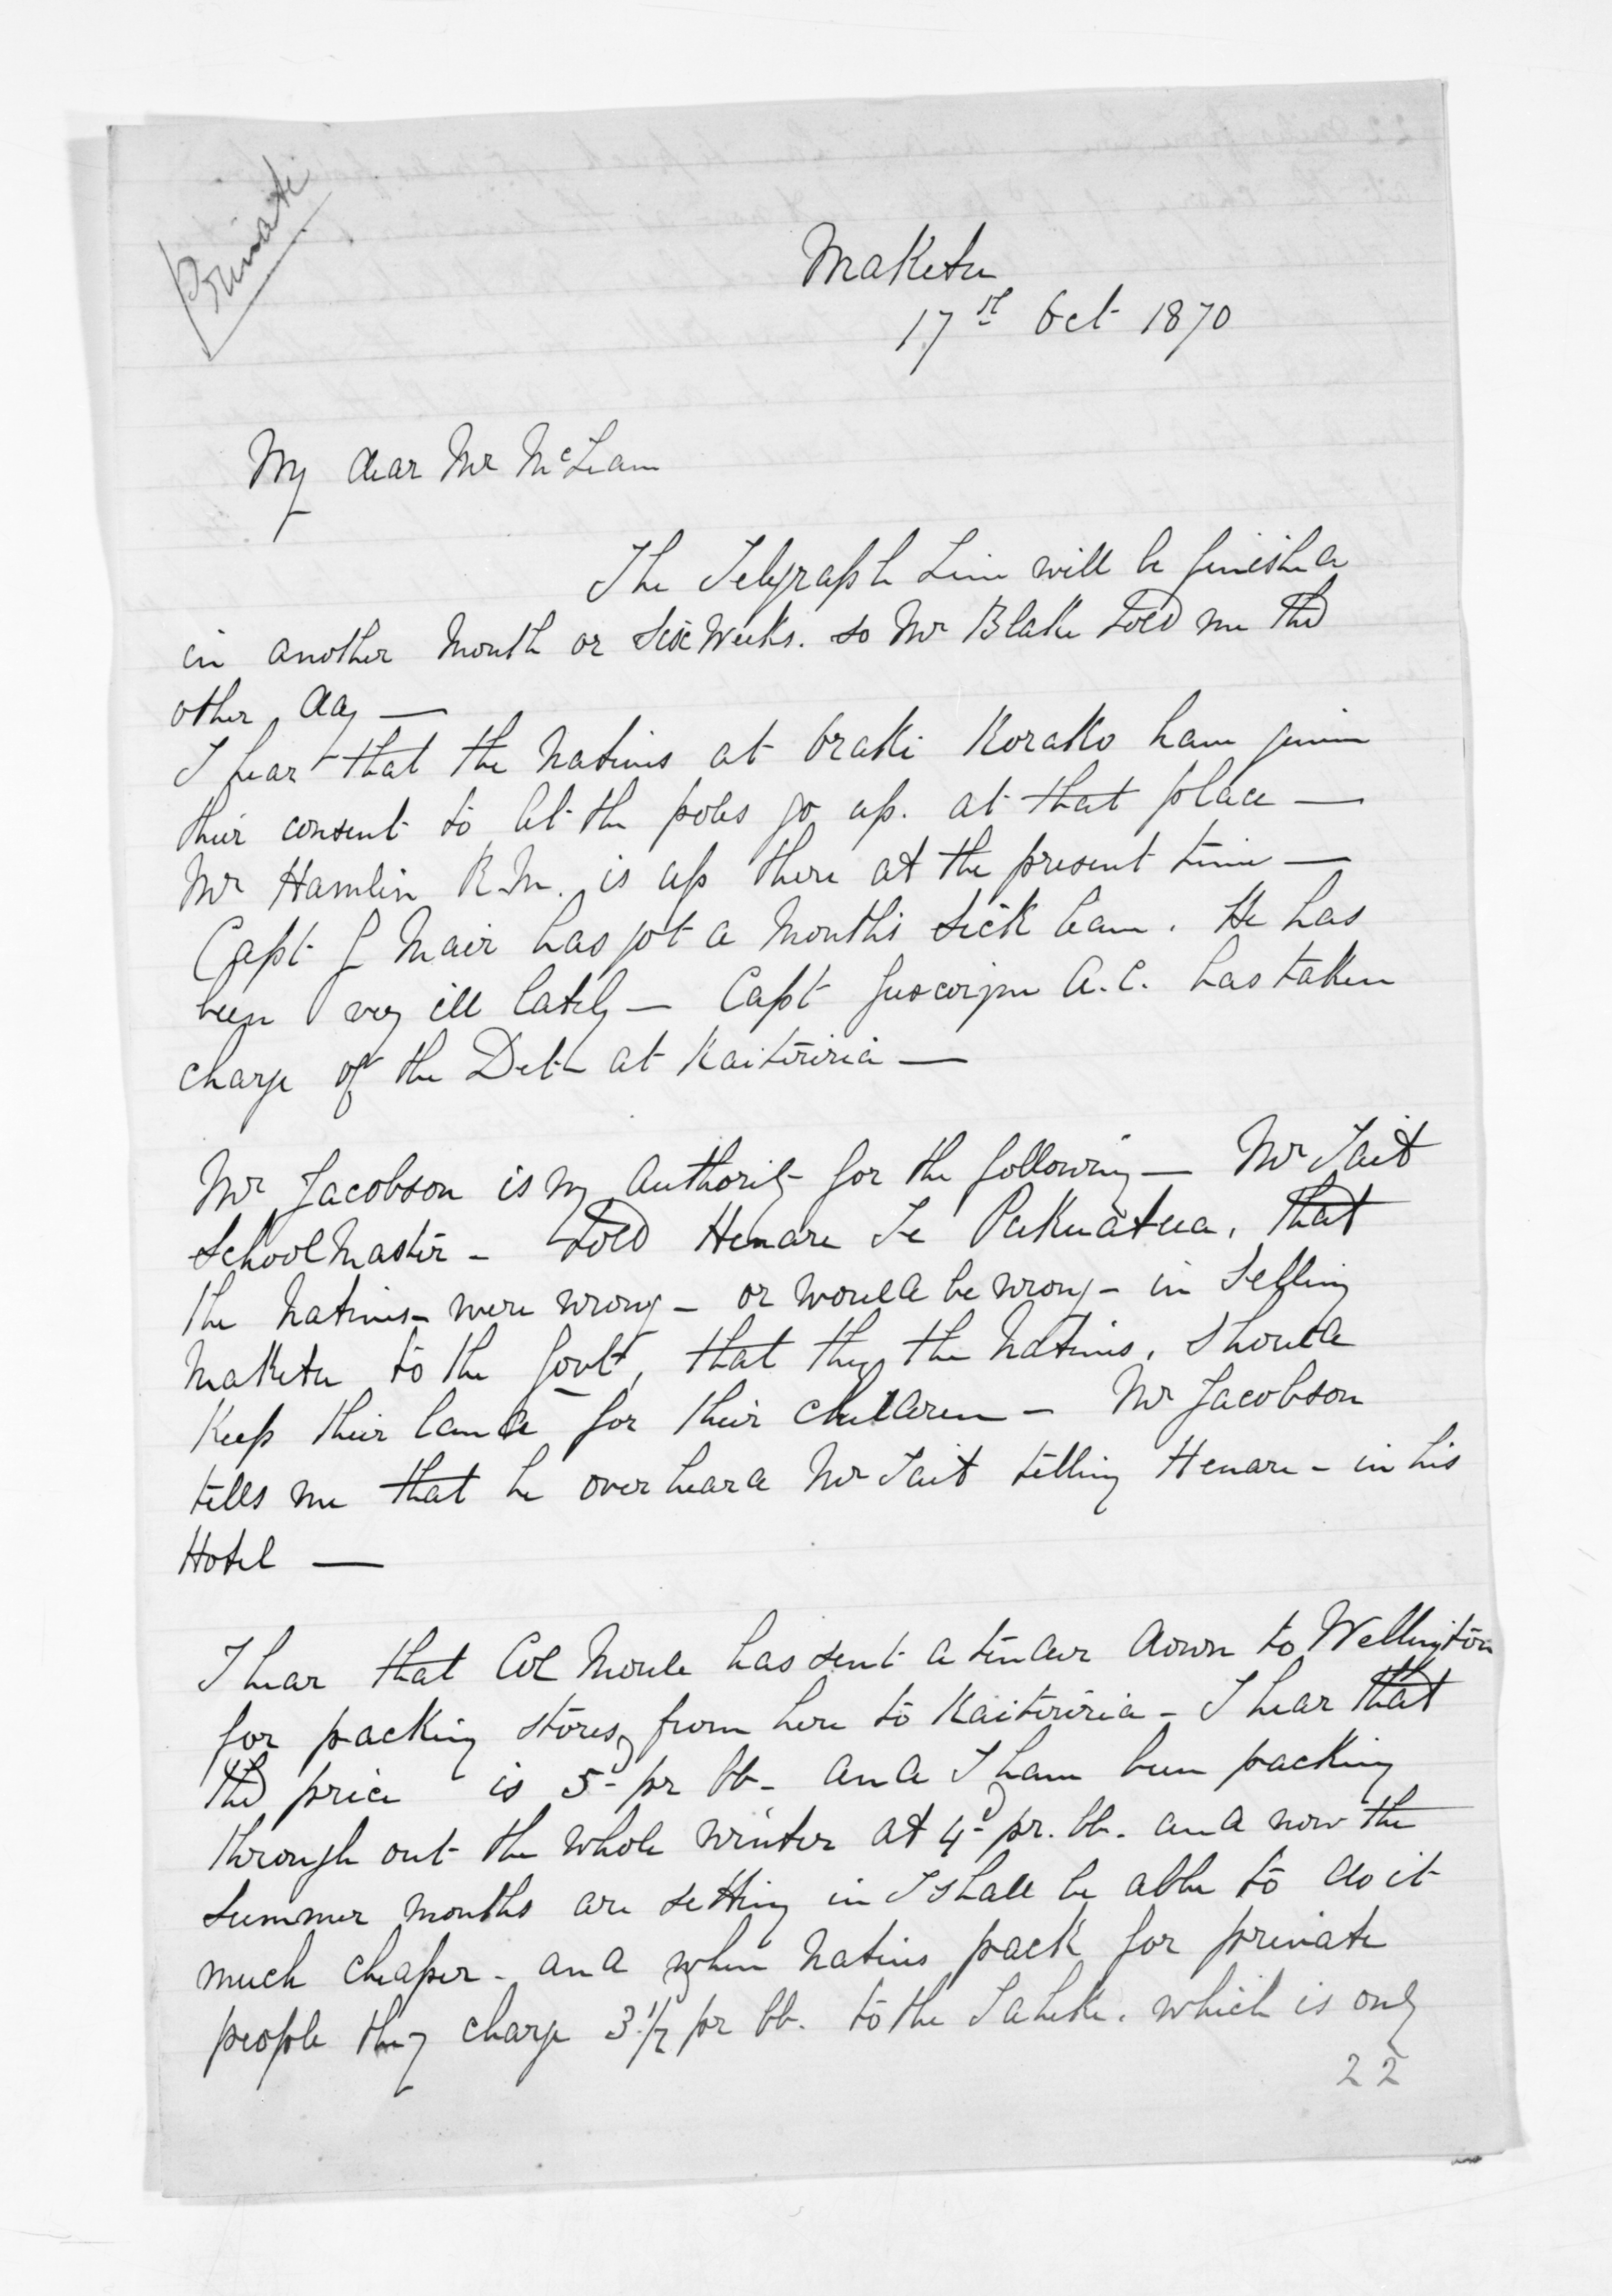 Private
Maketu
17th Oct 1870
My dear Mr McLean
The Telegraph Line will be finished
in another Month or Six Weeks. so Mr Blake told me the
other day —
I hear that the Natives at Oraki Korako have given
their consent to let the poles go up. at that place —
Mr Hamlin R.M. is up there at the present time —
Capt G Mair has got a Months sick leave. He has
been very ill lately — Capt Gascoigne A.C. has taken
charge of the Det at Kaiteriria —
Mr Jacobson is my authority for the following — Mr Tait
School Master - told Henare Te Pukuatua, that
the Natives - were wrong - or would be wrong - in selling
Maketu to the Govt, that they the Natives, should
Keep their land for their children - Mr Jacobson
tells me that he over heard Mr Tait telling Henare - in his
Hotel —
I hear that Col Moule has sent a tender down to Wellington
for packing stores, from here to Kaiteriria - I hear that
the price is 5d pr lb - and I have been packing
through out the whole winter at 4d pr. lb. and now the
summer months are setting in I shall be able to do it
much cheaper - and when Natives pack for private
people they charge 3 1/2 pr lb. to the Taheke. which is only
22